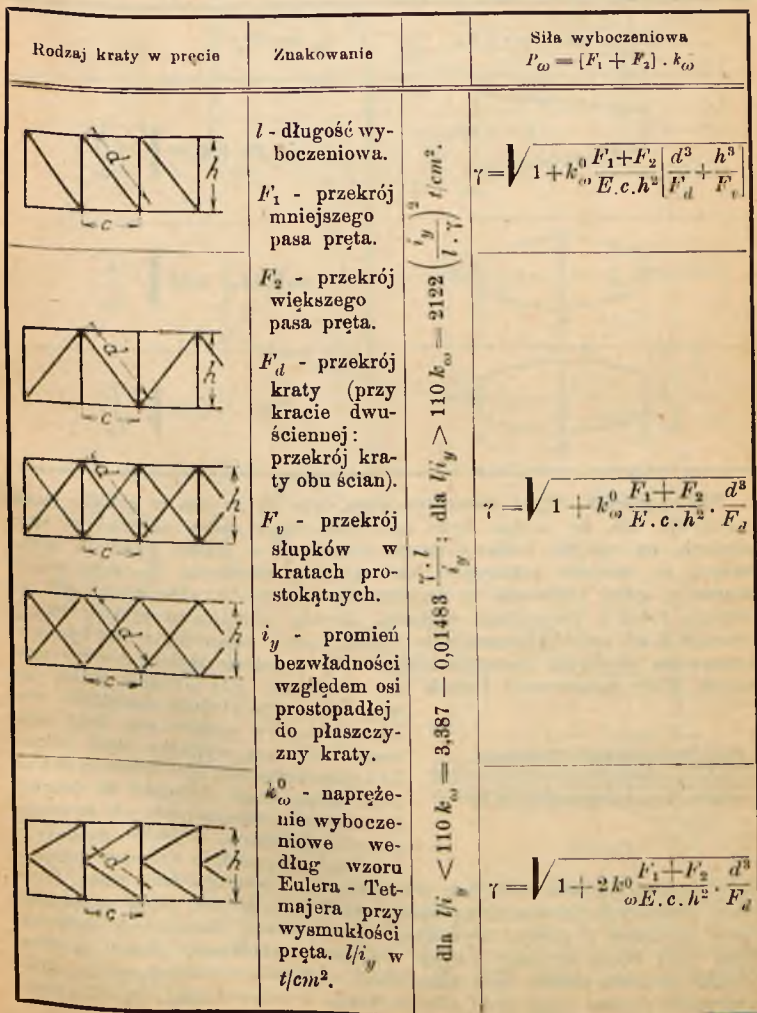 Rodzaj kraty w pręcie
Znakowanie
Siła wyboczeniowa
P_ω = [F₁ + F₂] . k_ω
d
h
c
d
h
c
d
h
c
d
h
c
d
h
c
l - długość wy-
boczeniowa.
F₁ - przekrój
mniejszego
pasa pręta.
F₂ - przekrój
większego
pasa pręta.
F_d - przekrój
kraty (przy
kracie dwu-
ściennej:
przekrój kra-
ty obu ścian).
F_v - przekrój
słupków w
kratach pro-
stokątnych.
i_y - promień
bezwładności
względem osi
prostopadłej
do płaszczy-
zny kraty.
k⁰_ω - napręże-
nie wybocze-
niowe we-
dług wzoru
Eulera - Tet-
majera przy
wysmukłości
pręta. l/i_y w
t/cm².
dla l/i_y < 110 k_ω = 3,387 — 0,01483 γ . l / i_y ; dla l/i_y > 110 k_ω = 2122 (i_y / l . γ)² t/cm².
γ = √(1 + k⁰_ω (F₁+F₂)/(E.c.h²) [d³/F_d + h³/F_v])
γ = √(1 + k⁰_ω (F₁+F₂)/(E.c.h²) . d³/F_d)
γ = √(1 + 2k⁰_ω (F₁+F₂)/(E.c.h²) . d³/F_d)